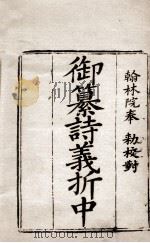 翰林院奉 勅校對
御纂詩義折中